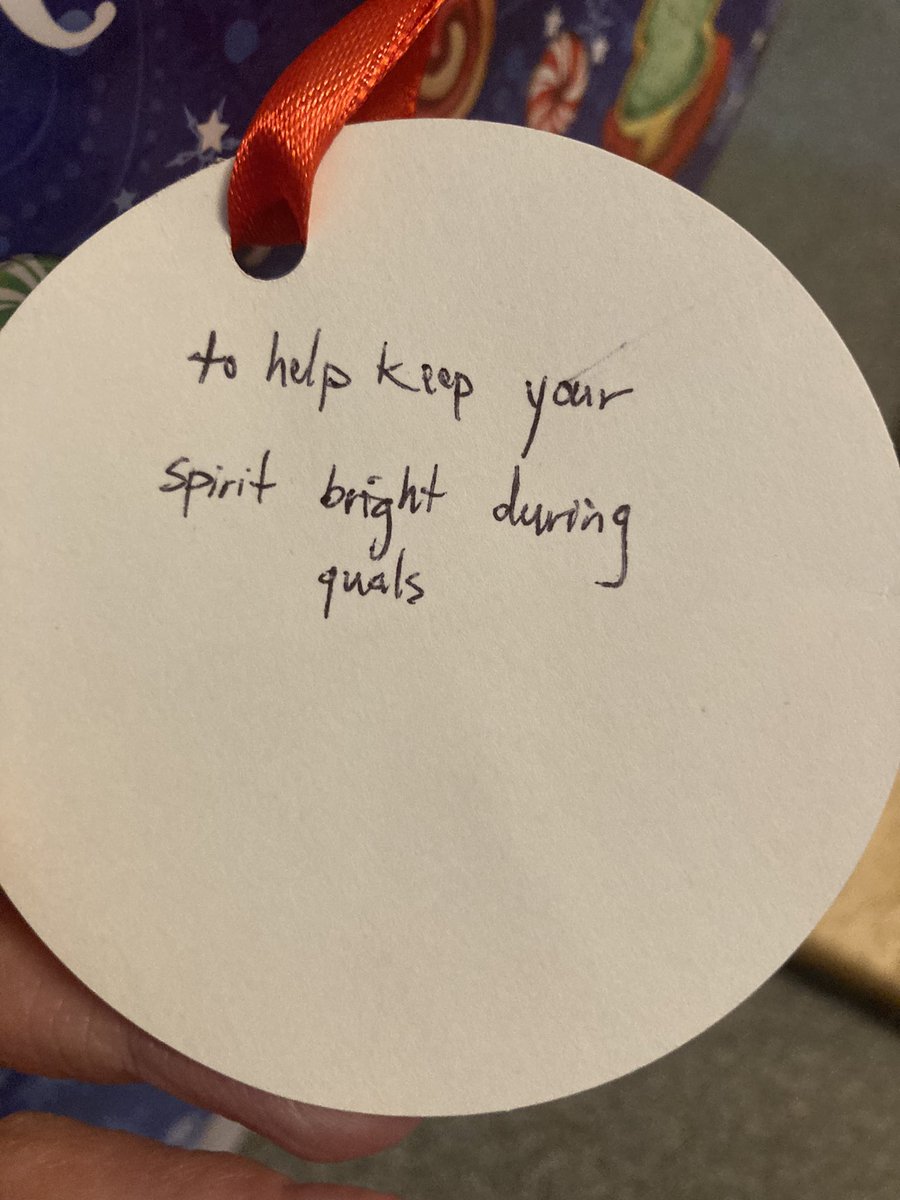 to help keep your
spirit bright during
quals